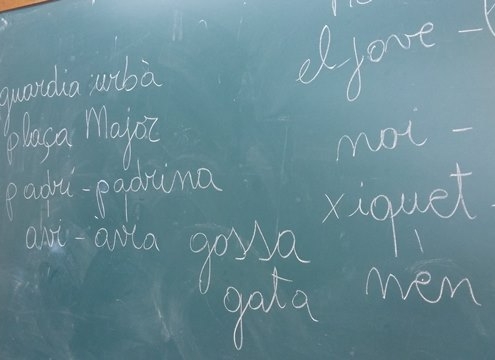 guardia urbà
plaça Major
padrí - padrina
avi - àvia
gossa
gata
el jove -
noi -
xiquet -
nen